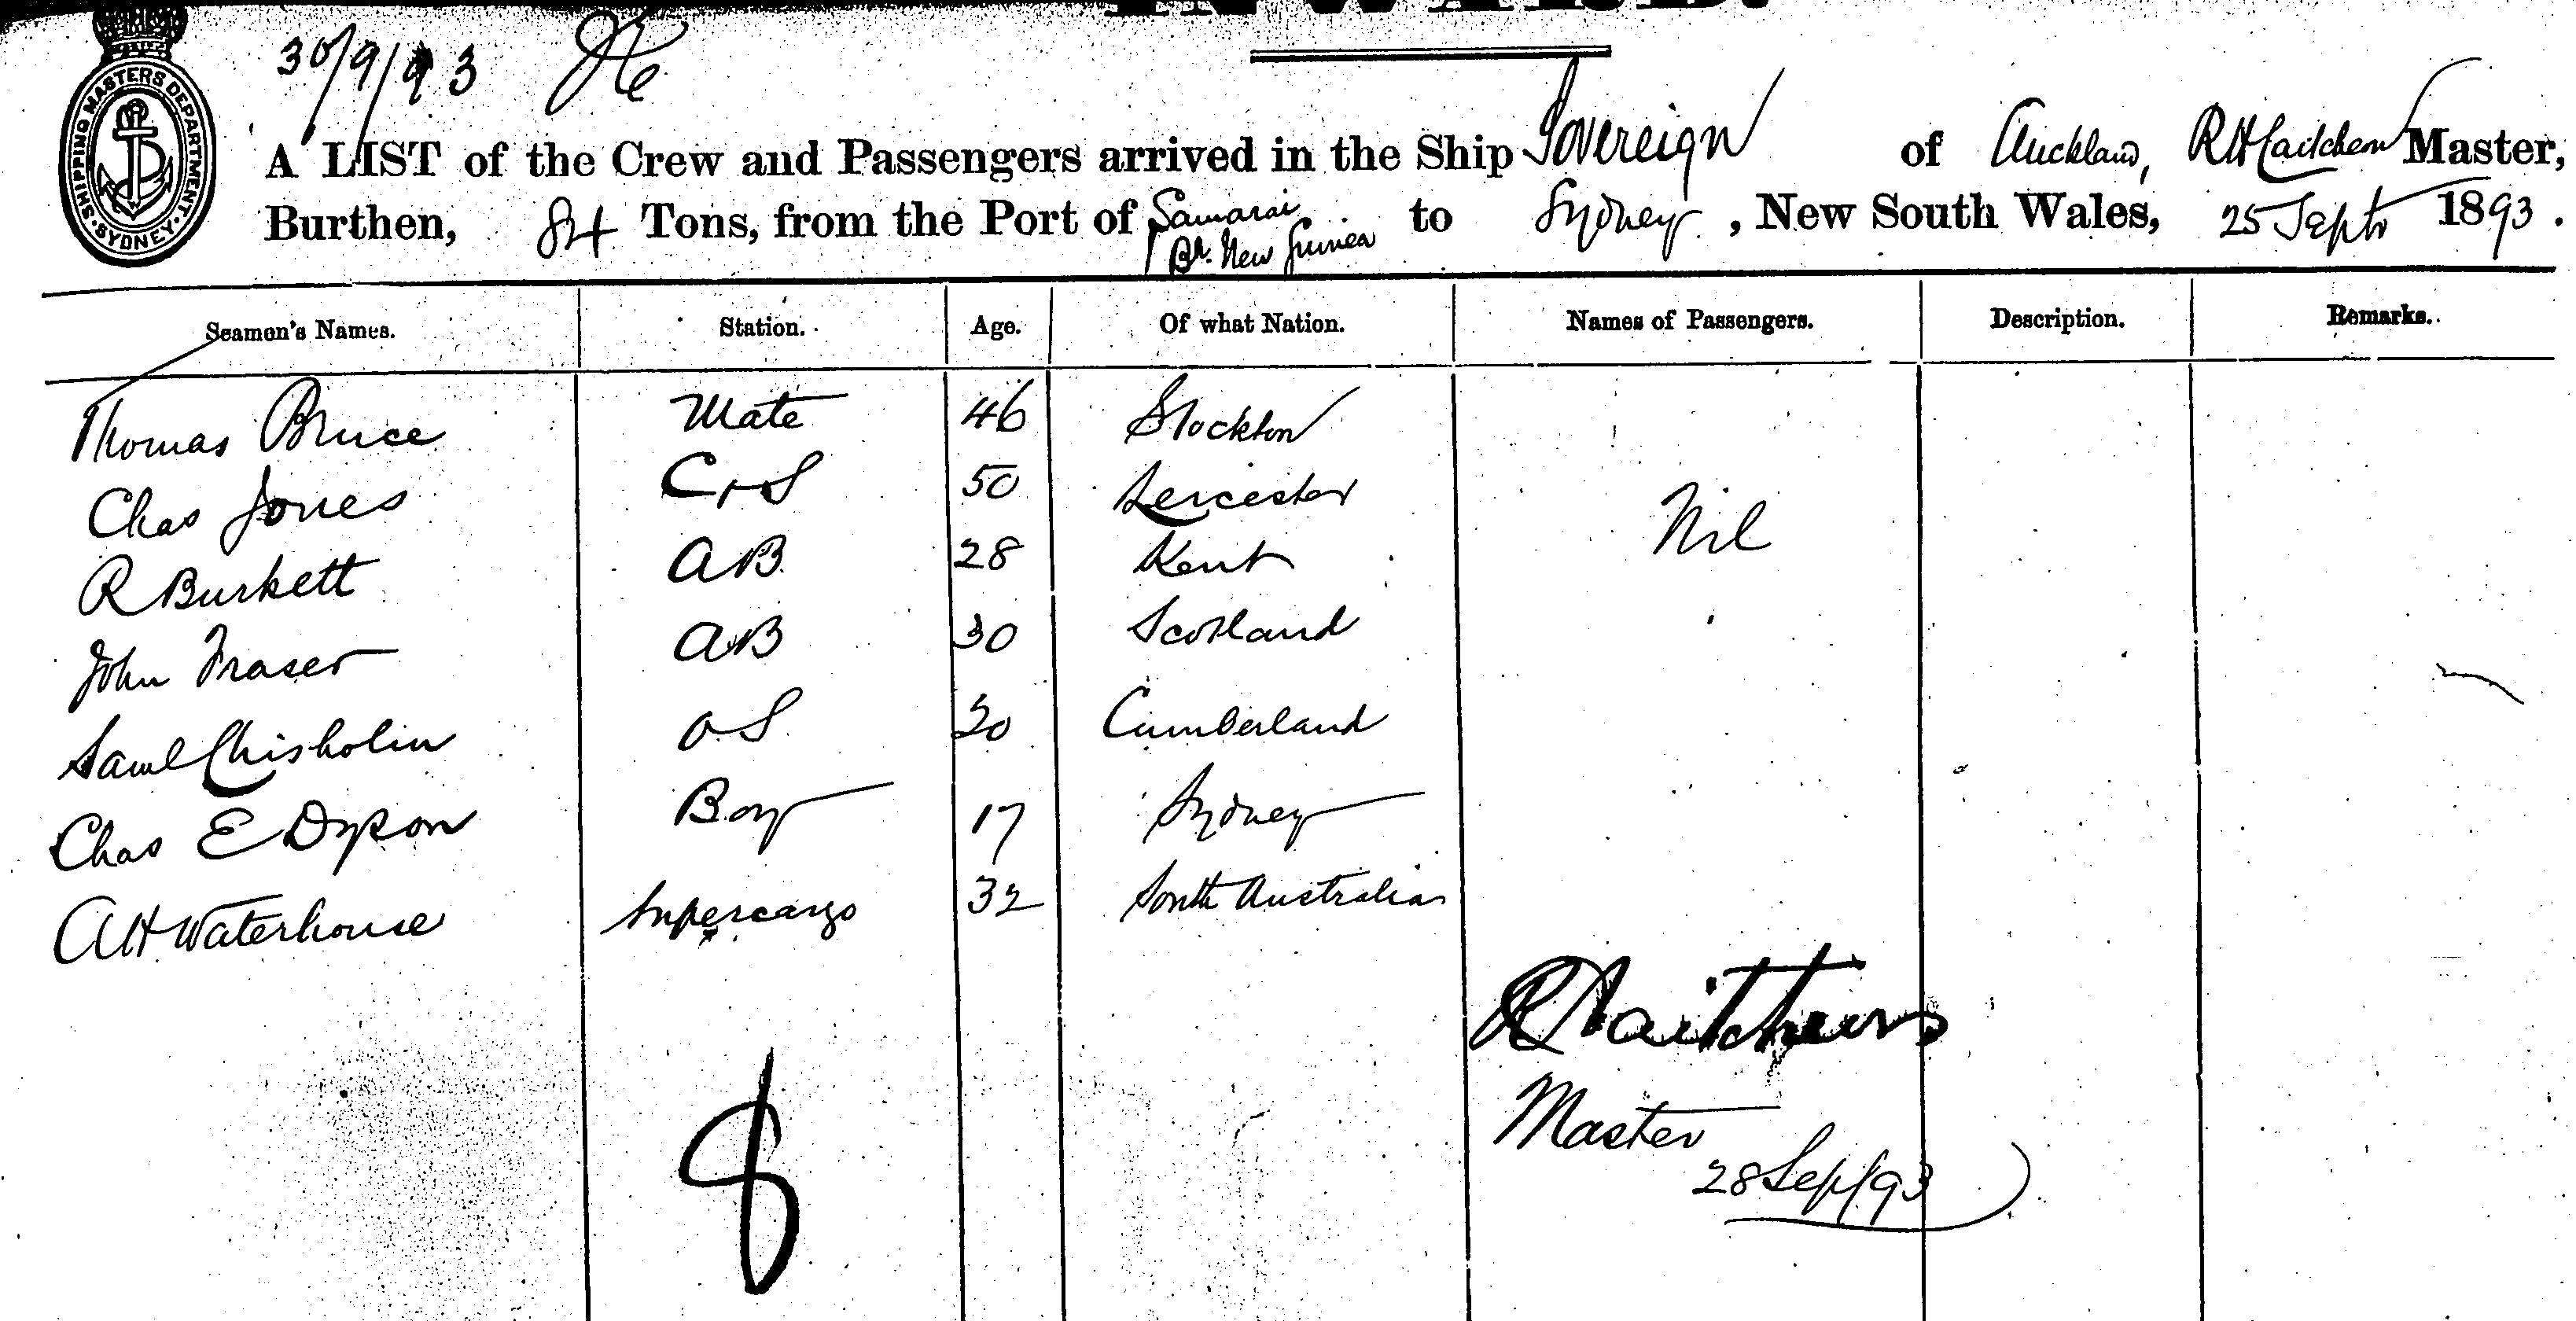 INWARD.
30/9/93
SHIPPING MASTERS DEPARTMENT. SYDNEY.
A LIST of the Crew and Passengers arrived in the Ship Sovereign of Auckland, Master,
Burthen, 84 Tons, from the Port of Samarai Br. New Guinea to Sydney, New South Wales, 25 Septr 1893.
Seamen's Names. Station. Age. Of what Nation. Names of Passengers. Description. Remarks.
Thomas Bruce Mate 46 Stockton
Chas Jones C+S 50 Leicester Nil
R Burkett AB 28 Kent
John Fraser AB 30 Scotland
Saml Chisholm OS 20 Cumberland
Chas E Dyson Boy 17 Sydney
AH Waterhouse Supercargo 32 South Australia
8
Master
28 Sep/93